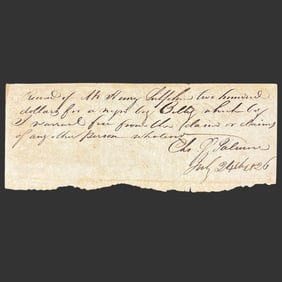 Received of Mr Henry two hundred
dollars for a negro boy which boy
I warrant free from the claim or claims
of any other Person whatever
Chs Palmer
July 24th 1826